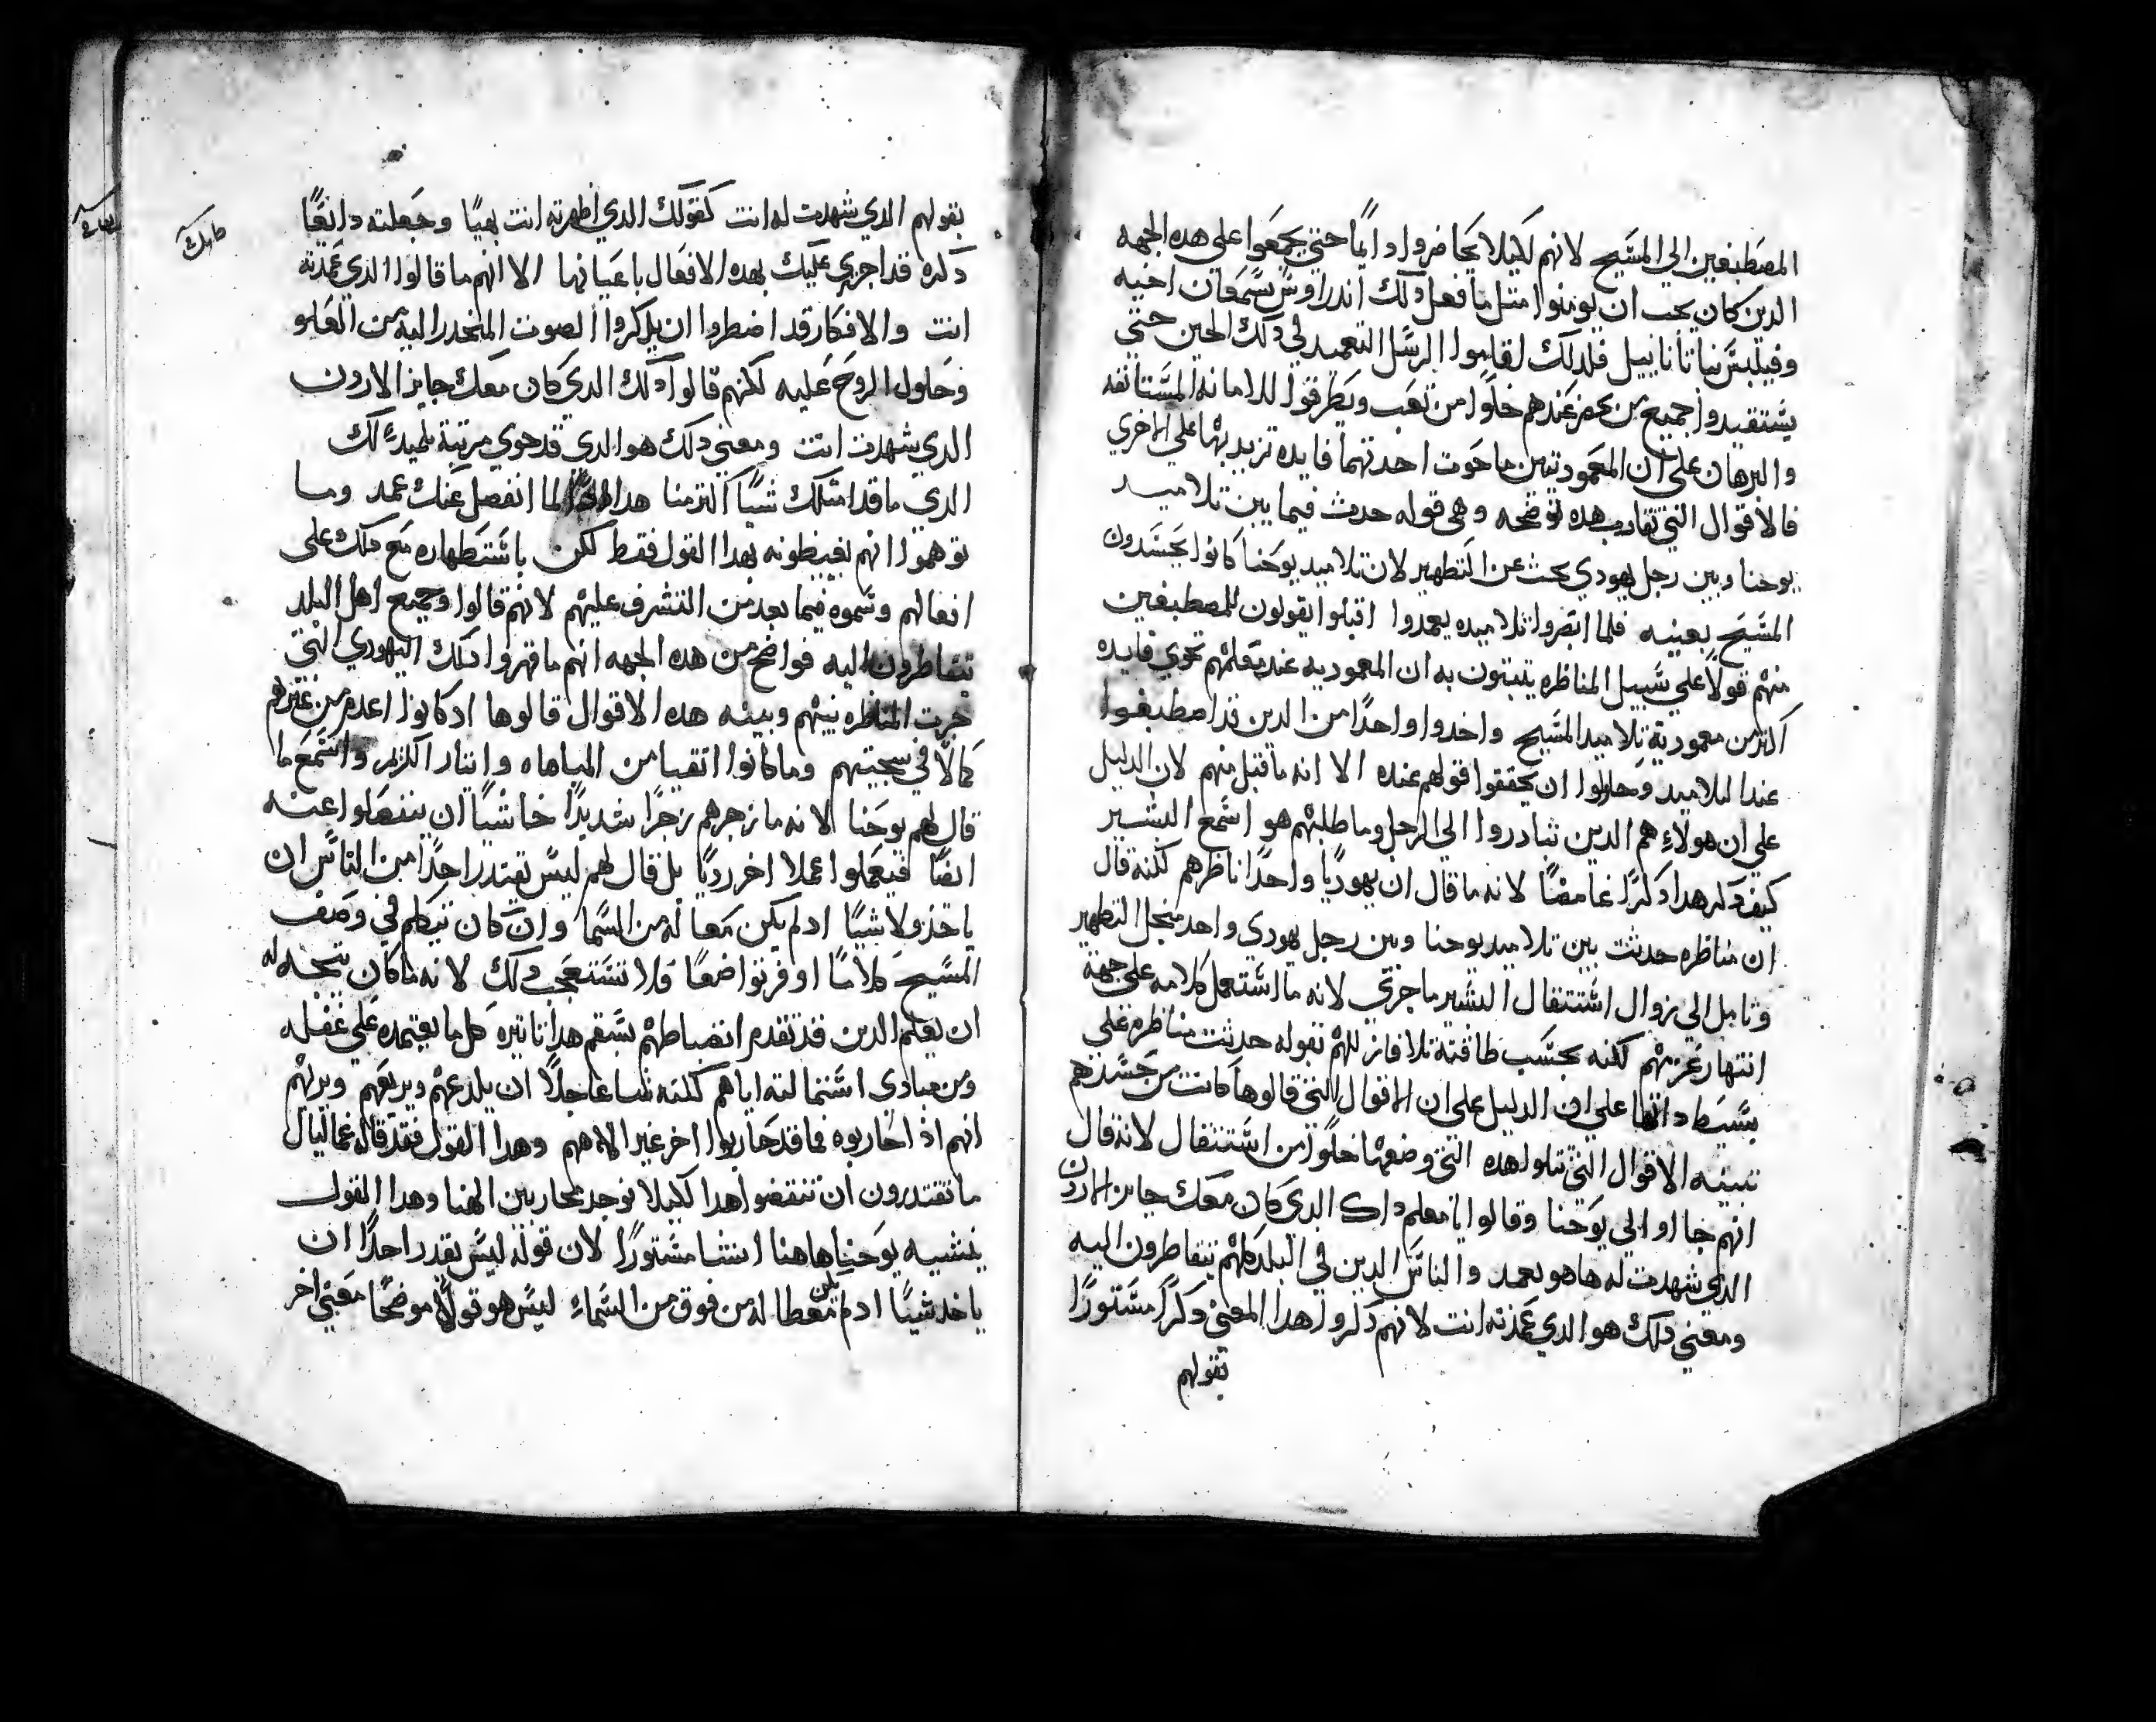 المصطبغين الي المسيح لانهم لكيلا يحاضروا دايمًا حتي يجمعوا علي هده الجهه
الدين كان يجب ان يومنوا مثل ما فعل دلك اندراوس بسمعان اخيه
وفيلبس بناتانابيل فلدلك لقاموا الرسل التعميد في دلك الحين حتي
يستفيدوا جميع من يحضر عندهم خلوا من تعب ويطرقوا للامانه المستانفه
والبرهان علي ان المعموديتين ما حوت احدتهما فايده تزيد بها علي الاخري
فالاقوال التي تقارب هده توضحه وهي قوله حدث فيما بين تلاميد
يوحنا وبين رجل يهودي بحث عن التطهير لان تلاميد يوحنا كانوا يحسدون
المسيح بعينه فلما ابصروا تلاميده يعمدوا اقبلوا يقولون للمصطبغين
منهم قولاً علي سبيل المناظره يثبتون به ان المعموديه عند معلمهم تحوي فايده
اكثر من معمودية تلاميد المسيح واخدوا واحدًا من الدين قد اصطبغوا
عند التلاميد وحاولوا ان يحققوا قولهم عنده الا انه ما قبل منهم لان الدليل
علي ان هولاء هم الدين تبادروا الي الرجل وما طلبهم هو اسمع البشير
كيف دكر هدا دكرًا غامضًا لانه ما قال ان يهوديًا واحدًا ناظرهم لكنه قال
ان مناظره حدثت بين تلاميد يوحنا وبين رجل يهودي واحد من اجل التطهير
وتامل الي زوال استثقال البشير ما جري لانه ما استعمل كلامه علي جهة
انتهار غيرهم لكنه بحسب طاقته تلافا زللهم بقوله حدثت مناظره علي
بسيط داتها علي ان الدليل علي ان الاقوال التي قالوها كانت من حسدهم
تبينه الاقوال التي تتلوا هده التي وضعها خلوا من استثقال لانه قال
انهم جااوا الي يوحنا وقالوا يا معلم داك الدي كان معك جايز الاردن
الدي شهدت له ها هو يعمد والناس الدين في البلد كلهم يتقاطرون اليه
ومعني دلك هو الدي عمدته انت لانهم دكروا هدا المعني دكرًا مستورًا
بقولهم
بقولهم الدي شهدت له انت كقولك الدي اظهرته انت بهيًا وجعلته دايعًا
دكره قد اجري عليك بهده الافعال باعيانها الا انهم ما قالوا الدي عمدته
انت والافكار قد اضطروا ان يدكروا الصوت المنحدر اليه من العلو
وحلول الروح عليه لكنهم قالوا دلك الدي كان معك جايز الاردن
الدي شهدت انت ومعني دلك هو الدي قد حوي مرتبة تلميد لك
الدي ما قد امتلك شيًا اكثر منا هدا لما انفصل عنك عمد وما
توهموا انهم يغيظونه بهدا القول فقط لكن باستظهاره مع دلك علي
افعالهم وسموه فيما بعد من التشرف عليهم لانهم قالوا وجميع اهل البلد
يتقاطرون اليه فواضح من هده الجهه انهم ما قهروا دلك اليهودي التي
جرت المناظره بينهم وبينه هده الاقوال قالوها اد كانوا اعدم من غيرهم
كمالاً في سجيتهم وما كانوا اتقيا من المباهاه وايثار التكريم واسمع ما
قال لهم يوحنا لانه ما زجرهم زجرًا شديدًا خاشيًا ان ينفصلوا عنه
ايضًا فيعملوا عملا اخر رديًا بل قال لهم ليس يقتدر احدًا من الناس ان
ياخذ ولا شيًا ادا لم يكن معطا له من السما وان كان يتكلم في وصف
المسيح كلامًا اوفر تواضعًا فلا تستعجب دلك لانه ما كان يتجه له
ان يعلم الدين قد تقدم انضباطهم بسقم هدا تاتيره كل ما يعتمده علي غفله
ومن مبادي استمالته اياهم لكنه يشا عاجلاً ان يلدعهم ويريعهم ويريهم
انهم اذ احاربوه فما قد حاربوا اخر غير الاههم وهدا القول فقد قاله غماليال
ما تقتدرون ان تنقضوا هدا لكيلا نوجد محاربين الهنا وهدا القول
ينشيه يوحنا هاهنا انشا مستورًا لان قوله ليس يقدر احدًا ان
ياخد شيًا ادا لم يكن معطا له من فوق من السماء ليس هو قولاً موضحًا معني اخر